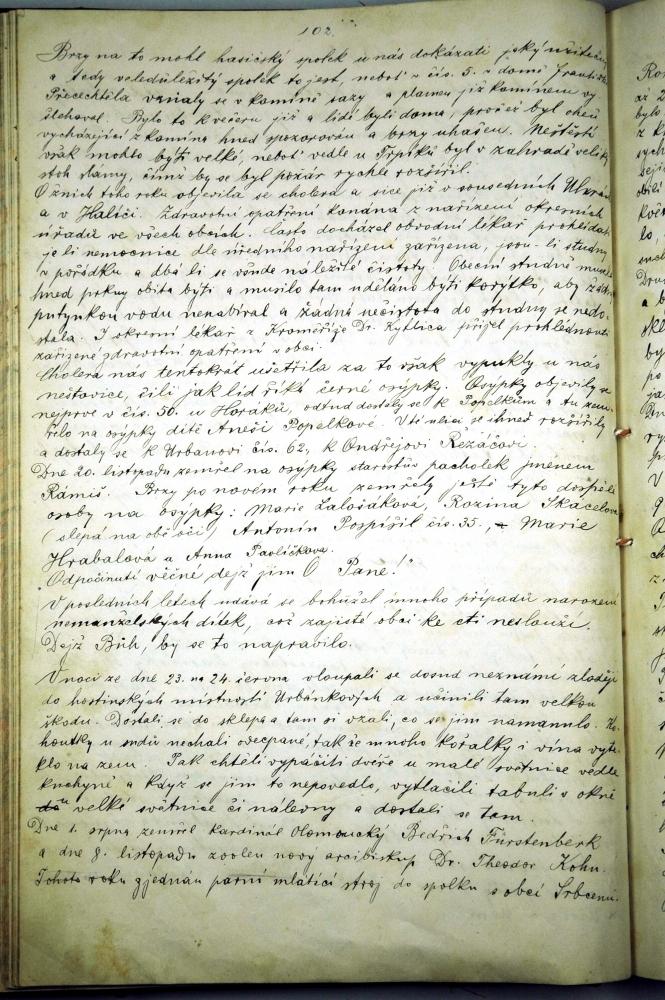 102.
Brzy na to mohl hasičský spolek u nás dokázati jaký užitečný
a tedy veledůležitý spolek to jest, neboť v čís. 5. v domě Františka
Přecechtěla vzňaly se v komíně sazy a plamen již komínem vy
šlehoval. Bylo to k večeru již a lidé byli doma, pročež byl oheň
vycházející z komína hned spozorován a brzy uhašen. Neštěstí
však mohlo býti velké, neboť vedle u Trpíků byl v zahradě veliký
stoh slámy, čímž by se byl požár rychle rozšířil.
O žních toho roku objevila se cholera a sice již v sousedních Uhrách
a v Haliči. Zdravotní opatření konána z nařízení okresních
úřadů ve všech obcích. Často docházel obvodní lékař prohlédati
je li nemocnice dle úředního nařízení zařízena, jsou-li studny
v pořádku a dbá li se všude náležité čistoty. Obecní studně musela
hned prkny obita býti a musilo tam uděláno býti korýtko, aby žádný
putynkou vodu nenabíral a žádná nečistota do studny se nedo-
stala. I okresní lékař z Kroměříže Dr. Kytlica přijel prohlédnouti
zařízené zdravotní opatření v obci.
Cholera nás tentokrát ušetřila za to však vypukly u nás
neštovice, čili jak lid říká černé osypky. Osypky objevily se
nejprve v čís. 50. u Horáků, odtud dostaly se k Popelkům a tu zem
řelo na osypky dítě Aneši Popelkové. V té ulici se ihned rozšířily
a dostaly se k Urbanovi čís. 62, k Ondřejovi Rezáčovi.
Dne 20. listopadu zemřel na osypky starostův pacholek jménem
Rámiš. Brzy po novém roku zemřely ještě tyto dospělé
osoby na osypky: Marie Lalošáková, Rozina Skácelova
(slepá na obě oči) Antonín Pospíšil čís. 35., Marie
Hrabalová a Anna Pavlíčkova.
"Odpočinutí věčné dejž jim Ó Pane!"
V posledních letech udává se bohužel mnoho případů narození
nemanželských dítek, což zajisté obci ke cti neslouží.
Dejž Bůh, by se to napravilo.
V noci ze dne 23. na 24. června vloupali se dosud neznámí zloději
do hostinských místností Urbánkových a učinili tam velkou
škodu. Dostali se do sklepa a tam si vzali, co se jim namanulo. Ko-
houtky u sudů nechali odecpané, tak že mnoho kořalky i vína vyte
klo na zem. Pak chtěli vypáčiti dvéře u malé světnice vedle
kuchyně a když se jim to nepovedlo, vytlačili tabuli v okně
do velké světnice či nálevny a dostali se tam.
Dne 1. srpna zemřel kardinál Olomoucký Bedřich Fürstenberk
a dne 8. listopadu zvolen nový arcibiskup Dr. Theodor Kohn.
Tohoto roku zjednán parní mlátící stroj do spolku s obcí Srbcemi.